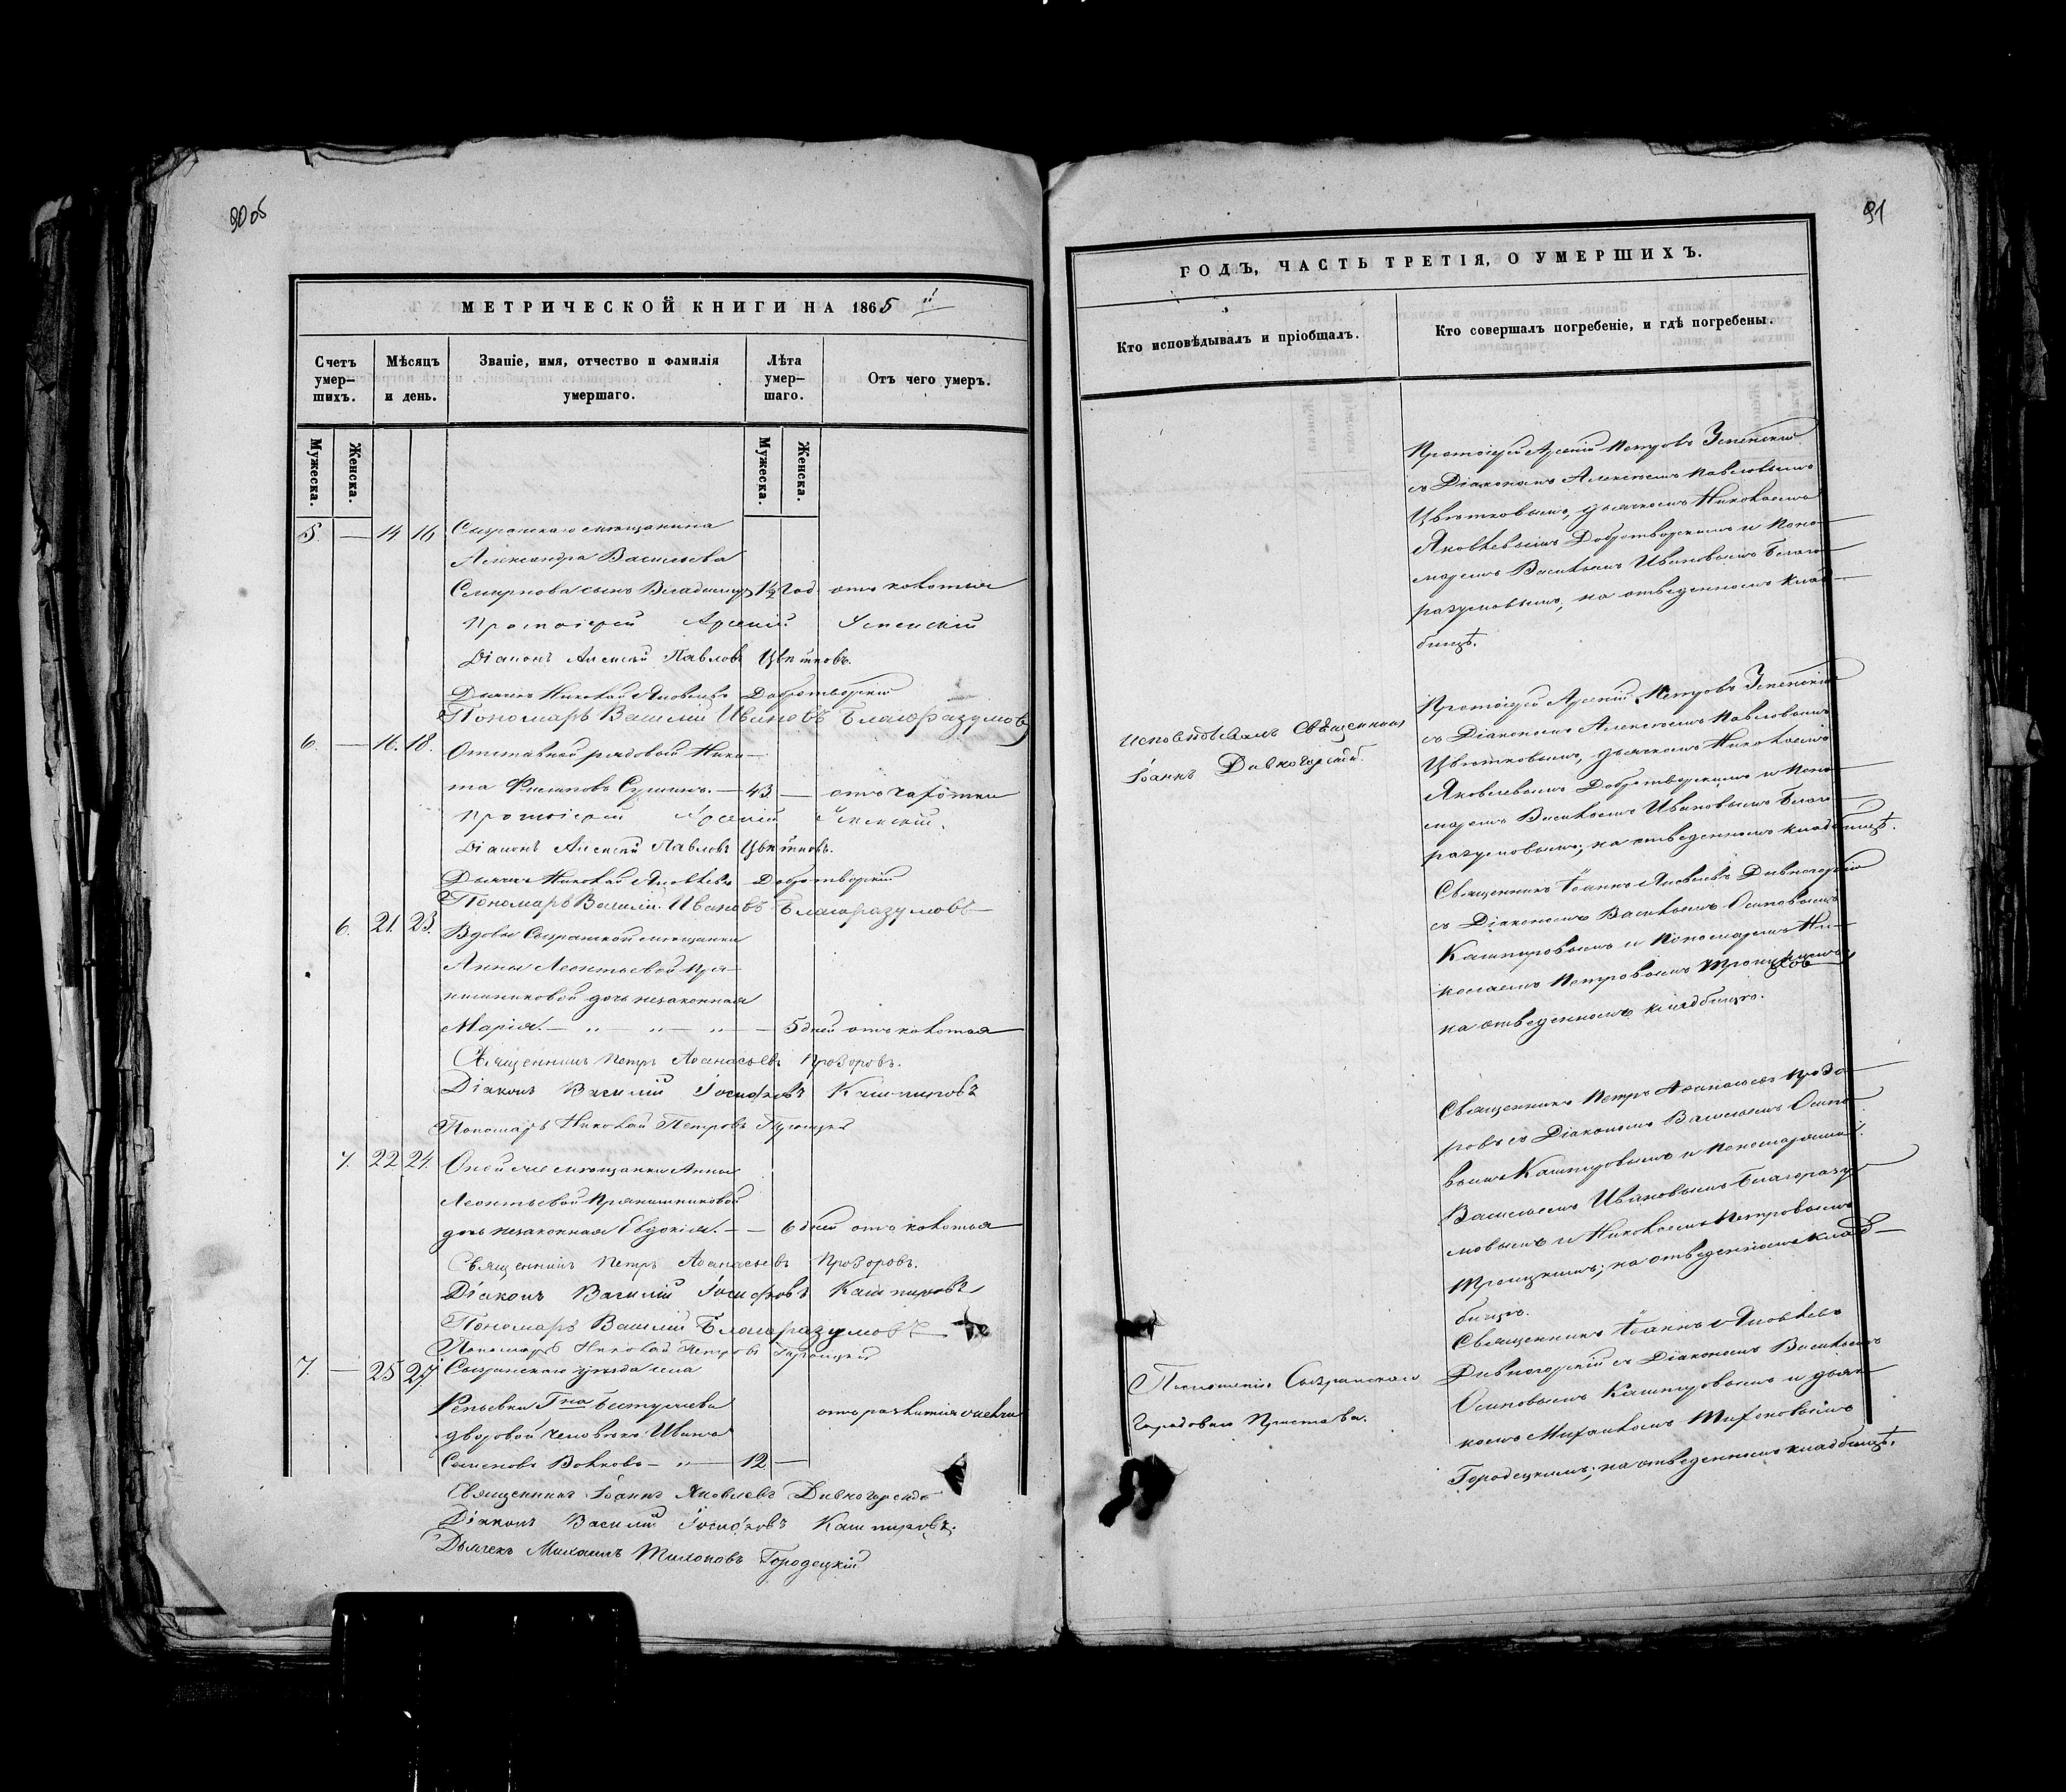 90 об
МЕТРИЧЕСКОЙ КНИГИ НА 1865й
Счетъ умер-шихъ.
Мѣсяцъ и день.
Званіе, имя, отчество и фамилія умершаго.
Лѣта умер-шаго.
Отъ чего умеръ.
Мужеска.
Женска.
Мужеска.
Женска.
5. — 14 16 Сызранскаго мѣщанина
Александра Васильева
Смирнова сынъ Владимиръ 1½ год. отъ колотья
Протоіерей Арсеній Успенскій
Діаконъ Алексѣй Павловъ Цвѣтковъ.
Дьячекъ Николай Яковлевъ Добротворскій
Пономарь Василій Ивановъ Благоразумовъ
6. — 16. 18. Отставной рядовой Ники-
та Филиповъ Сушинъ. — 43 — отъ чахотки
Протоіерей Арсеній Успенскій.
Діаконъ Алексѣй Павловъ Цвѣтковъ.
Дьячекъ Николай Яковлевъ Добротворскій
Пономарь Василій Ивановъ Благоразумовъ
6. 21. 23. Вдовы Сызранской мѣщанки
Анны Леонтьевой Пря-
нишниковой дочь незаконная
Марія. — „ — „ — „ — 5 дней отъ колотья
Священникъ Петръ Аѳанасьевъ Прозоровъ.
Діаконъ Василій Іосифовъ Кашпировъ
Пономарь Николай Петровъ Троицкій
7. 22 24. Оной же мѣщанки Анны
Леонтьевой Прянишниковой
дочь незаконная Евдокія. — — 6 дней отъ колотья
Священникъ Петръ Аѳанасьевъ Прозоровъ.
Діаконъ Василій Іосифовъ Кашпировъ
Пономарь Василій Благоразумовъ
Пономарь Николай Петровъ Троицкій
7. — 25 27. Сызранскаго уѣзда села
Репьевки Гна Бестужева
дворовой человѣкъ Иванъ отъ
Семеновъ Волковъ — „ — 12 —
Священникъ Іоаннъ Яковлевъ Дивногорскій
Діаконъ Василій Іосифовъ Кашпировъ.
Дьячекъ Михаилъ Тихоновъ Городецкій
91
ГОДЪ, ЧАСТЬ ТРЕТІЯ, О УМЕРШИХЪ.
Кто исповѣдывалъ и пріобщалъ.
Кто совершалъ погребеніе, и гдѣ погребены.
Протоіерей Арсеній Петровъ Успенскій
съ Діакономъ Алексѣемъ Павловымъ
Цвѣтковымъ, дьячкомъ Николаемъ
Яковлевымъ Добротворскимъ и Поно-
маремъ Васильемъ Ивановымъ Благо-
разумовымъ, на отведенномъ клад-
бищѣ.
Исповѣдывалъ Священникъ
Іоаннъ Дивногорскій.
Протоіерей Арсеній Петровъ Успенскій
съ Діакономъ Алексѣемъ Павловымъ
Цвѣтковымъ, дьячкомъ Николаемъ
Яковлевымъ Добротворскимъ и Поно-
маремъ Васильемъ Ивановымъ Благо-
разумовымъ; на отведенномъ кладбищѣ.
Священникъ Іоаннъ Яковлевъ Дивногорскій
съ Діакономъ Васильемъ Осиповымъ
Кашпировымъ и Пономаремъ Ни-
колаемъ Петровымъ Троицкимъ,
на отведенномъ кладбищѣ.
Священникъ Петръ Аѳанасьевъ Прозо-
ровъ съ Діакономъ Васильемъ Осипо-
вымъ Кашпировымъ и Пономарями:
Васильемъ Ивановымъ Благоразу-
мовымъ и Николаемъ Петровымъ
Троицкимъ; на отведенномъ клад-
бищѣ.
По Сызранскаго
Городоваго Пристава.
Священникъ Іоаннъ Яковлевъ
Дивногорскій съ Діакономъ Васильемъ
Осиповымъ Кашпировымъ и дьяч-
комъ Михаиломъ Тихоновымъ
Городецкимъ; на отведенномъ кладбищѣ.